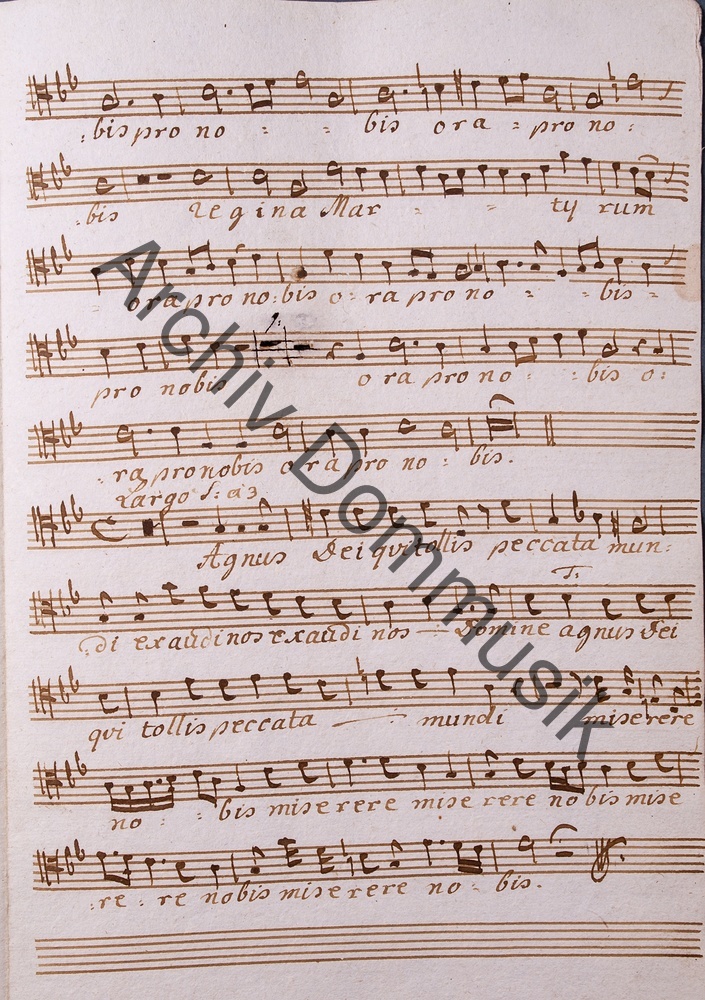 : bis pro no : : bis ora : pro no :
: bis Regina Mar : : : ty rum
ora pro no: bis o : ra pro no : : bis :
pro nobis o ra pro no : : bis o :
: ra pro nobis ora pro no : bis.
Largo S: à 3
Agnus Dei qui tollis peccata mun :
T:
: di exaudi nos exaudi nos — Domine agnus Dei
qui tollis peccata — : mundi miserere
no : : bis miserere miserere nobis mise
: re : re nobis miserere no : bis.
Archiv Dommusik